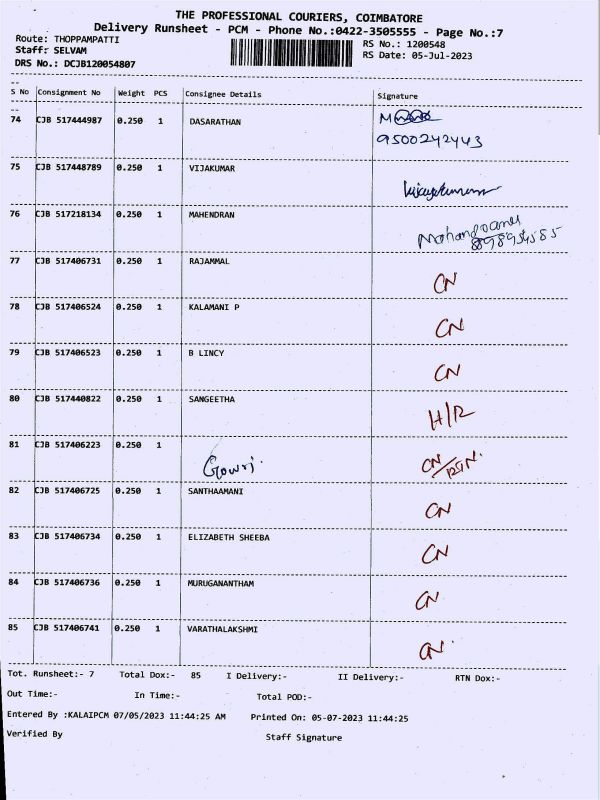 THE PROFESSIONAL COURIERS, COIMBATORE
Delivery Runsheet - PCM - Phone No.:0422-3505555 - Page No.:7
Route: THOPPAMPATTI RS No.: 1200548
Staff: SELVAM RS Date: 05-Jul-2023
DRS No.: DCJB120054807
--
S No Consignment No Weight PCS Consignee Details Signature
--
74 CJB 517444987 0.250 1 DASARATHAN
9500242443
75 CJB 517448789 0.250 1 VIJAKUMAR
Vijayakumar
76 CJB 517218134 0.250 1 MAHENDRAN
77 CJB 517406731 0.250 1 RAJAMMAL CN
78 CJB 517406524 0.250 1 KALAMANI P CN
79 CJB 517406523 0.250 1 B LINCY CN
80 CJB 517440822 0.250 1 SANGEETHA H/R
81 CJB 517406223 0.250 1 Gowri. CN/RTN.
82 CJB 517406725 0.250 1 SANTHAAMANI CN
83 CJB 517406734 0.250 1 ELIZABETH SHEEBA CN
84 CJB 517406736 0.250 1 MURUGANANTHAM CN
85 CJB 517406741 0.250 1 VARATHALAKSHMI CN
Tot. Runsheet:- 7 Total Dox:- 85 I Delivery:- II Delivery:- RTN Dox:-
Out Time:- In Time:- Total POD:-
Entered By :KALAIPCM 07/05/2023 11:44:25 AM Printed On: 05-07-2023 11:44:25
Verified By Staff Signature